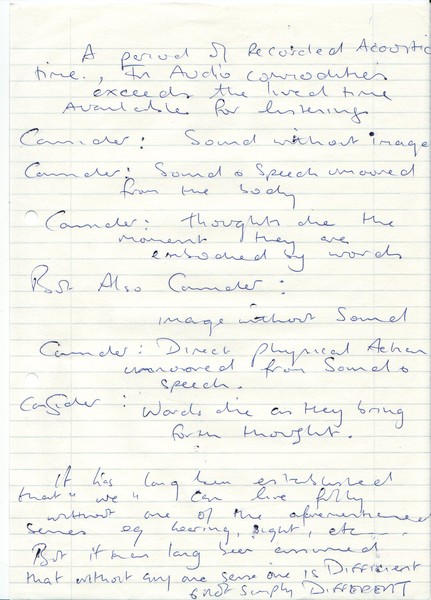 A period of Recorded Acoustic
time., In Audio comodities
exceeds the lived time
Available for listening
Consider: Sound without image
Consider: Sound & Speech unmoored
from the body
Consider: thoughts die the
moment they are
embodied by words
But Also Consider:
image without Sound
Consider: Direct physical Action
unmoored from Sound &
speech.
Consider: Words die as they bring
forth thought.
It has long been established
that "we" can live fully
without one of the aforementioned
senses eg hearing, sight, etc
But it has long been assumed
that without any one sense one is DIFFERENT
& not simply DIFFERENT